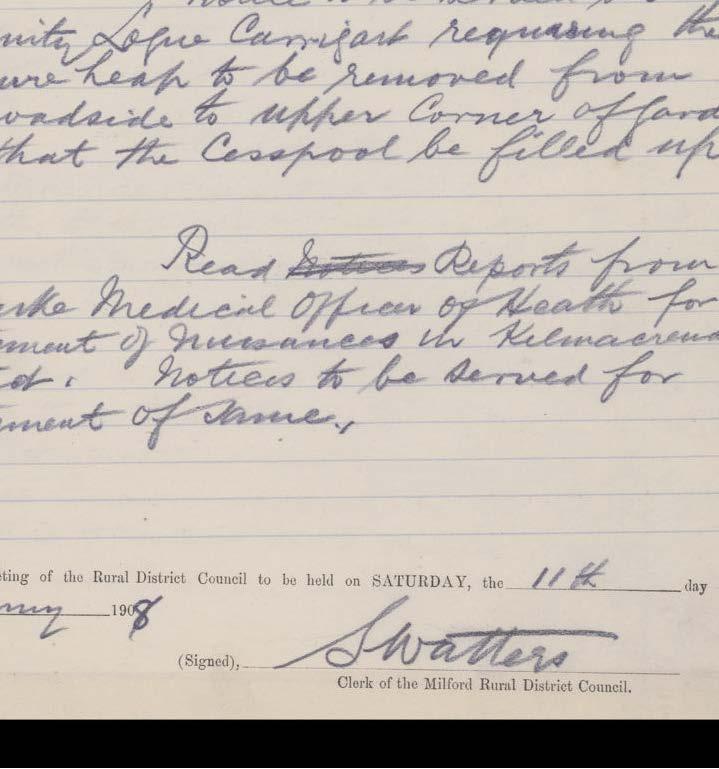 nity Logue Carrigart requiring the
ure heap to be removed from
oadside to upper Corner of Gard
that the Cesspool be filled up
Read Notices Reports from
arke Medical Officer of Heath for
ement of Nuisances in Kilmacrena
ct. Notices to be served for
ement of Same.,
ting of the Rural District Council to be held on SATURDAY, the 11th day
1908
(Signed), S Watters
Clerk of the Milford Rural District Council.